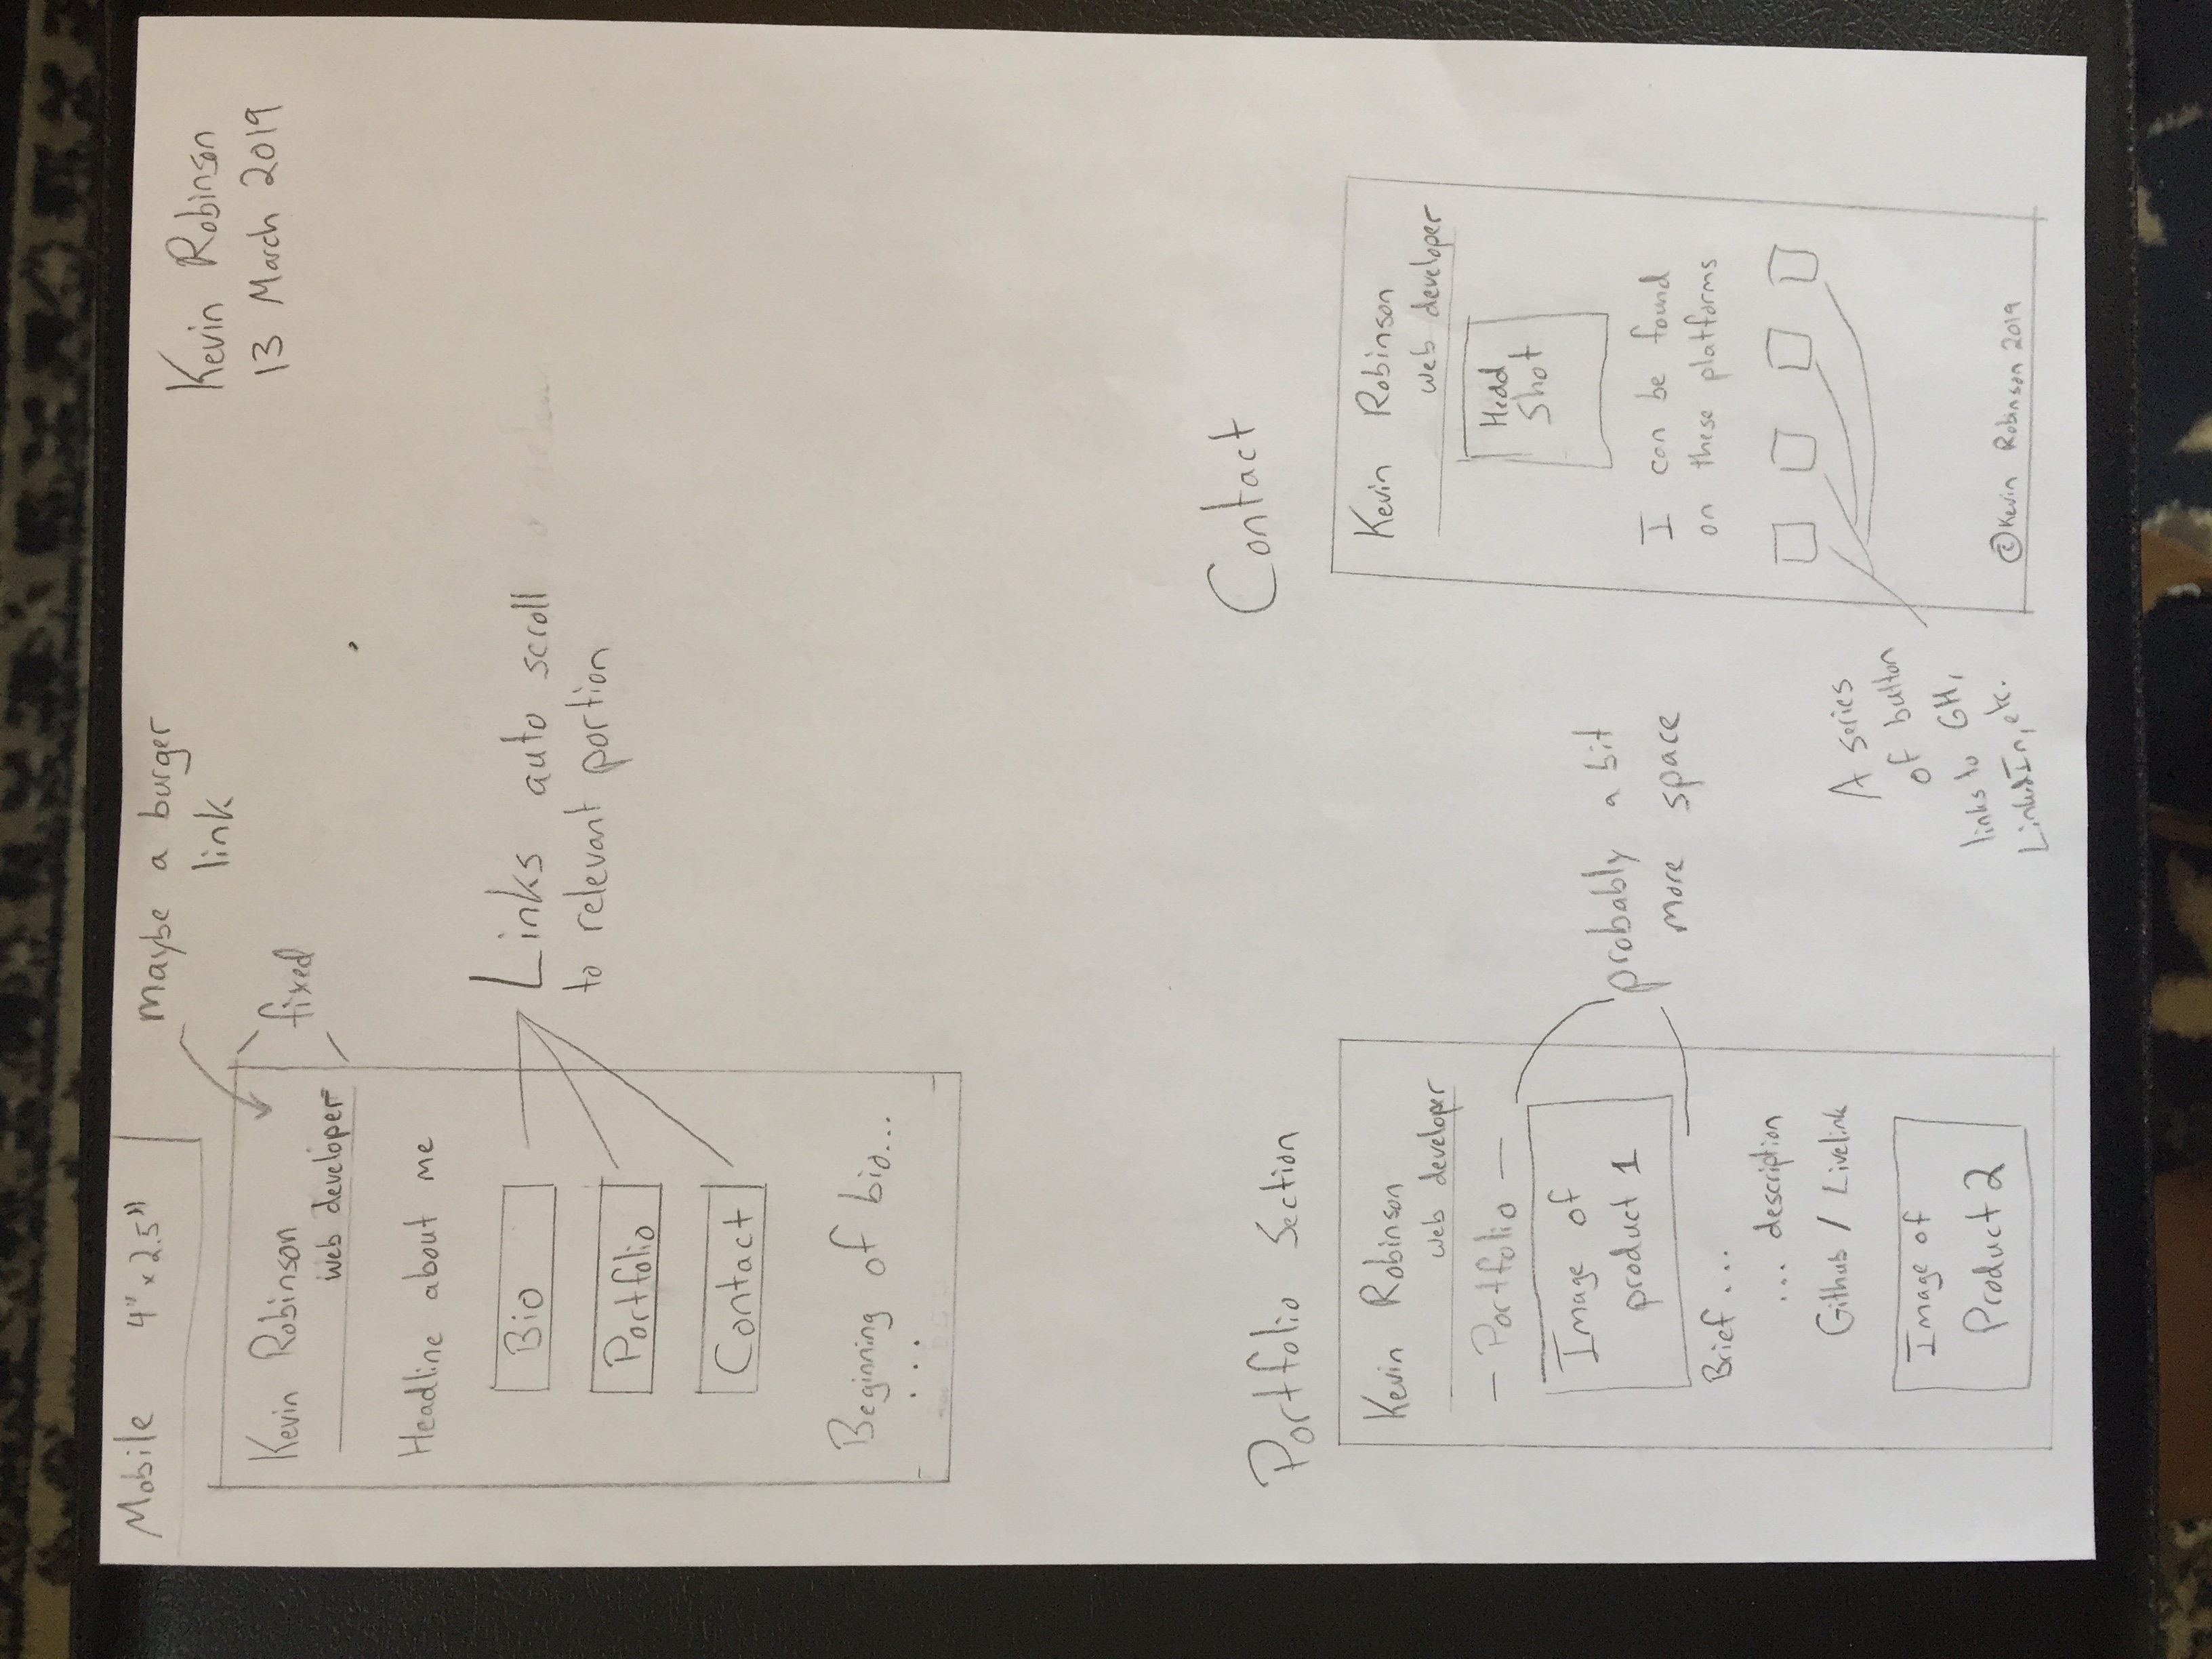 Mobile 4" x 2.5"
maybe a burger
link
Kevin Robinson
13 March 2019
Kevin Robinson
web developer
fixed
Headline about me
Bio
Portfolio
Contact
Links auto scroll
to relevant portion
Beginning of bio...
...
Portfolio Section
Kevin Robinson
web developer
- Portfolio -
Image of
product 1
probably a bit
more space
Brief ...
... description
Github / Livelink
Image of
Product 2
Contact
Kevin Robinson
web developer
Head
Shot
I can be found
on these platforms
A series
of button
links to GH,
LinkedIn, etc.
©Kevin Robinson 2019